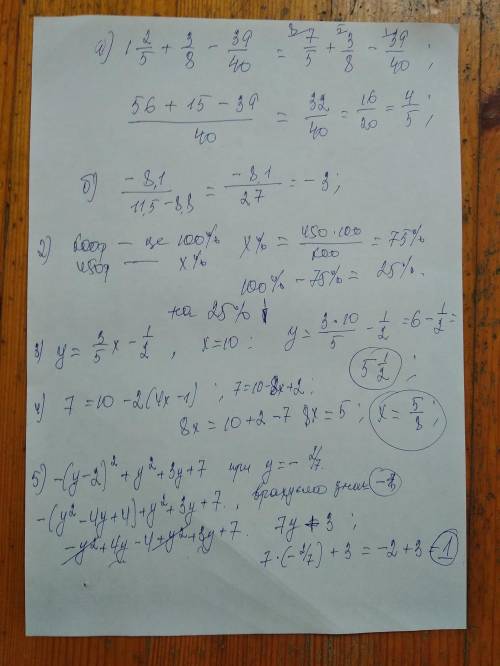 а) 1 2/5 + 3/8 − 39/40 = 7/5 + 3/8 − 39/40 ;
(56 + 15 − 39)/40 = 32/40 = 16/20 = 4/5 ;
б) −8,1/(11,5−8,8) = −8,1/27 = −3 ;
2) 600р — це 100% x% = (450·100)/600 = 75%
450р — x% 100% − 75% = 25%.
на 25%
3) y = 3/5 x − 1/2 , x=10 : y = (3·10)/5 − 1/2 = 6 − 1/2 =
5 1/2 ;
4) 7 = 10 − 2(4x−1) ; 7=10−8x+2 ;
8x = 10+2−7 8x = 5 ; x = 5/8 ;
5) −(y−2)² + y² + 3y + 7 при y = − 2/7.
−(y² − 4y + 4) + y² + 3y + 7. , врахуємо знак
−y² + 4y − 4 + y² + 3y + 7. 7y + 3 ;
7·(−2/7) + 3 = −2 + 3 = 1